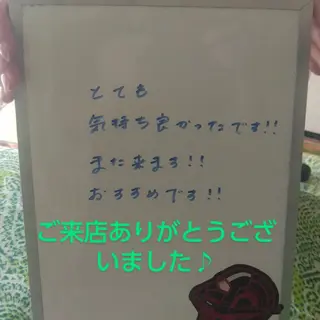 とても
気持ち良かったです!!
また来ます!!
おすすめです!!
ご来店ありがとうござ
いました♪